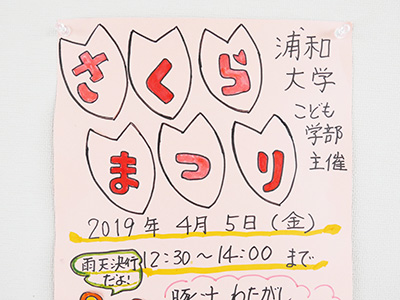 さくら
まつり
浦和
大学
こども
学部
主催
2019年 4月 5日(金)
12:30〜14:00 まで
雨天決行
だよ!
豚汁 わたがし